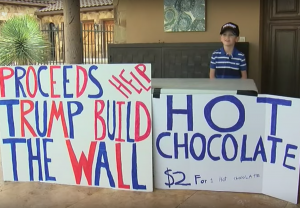 PROCEEDS HELP
TRUMP BUILD
THE WALL
HOT
CHOCOLATE
$2 For 1 Hot chocolate